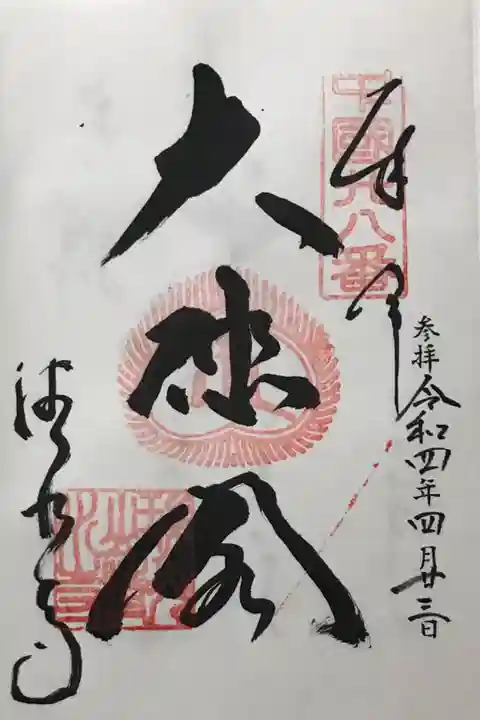 中國廿八番
奉拝
参拝 令和四年四月廿三日
大悲閣
清水寺